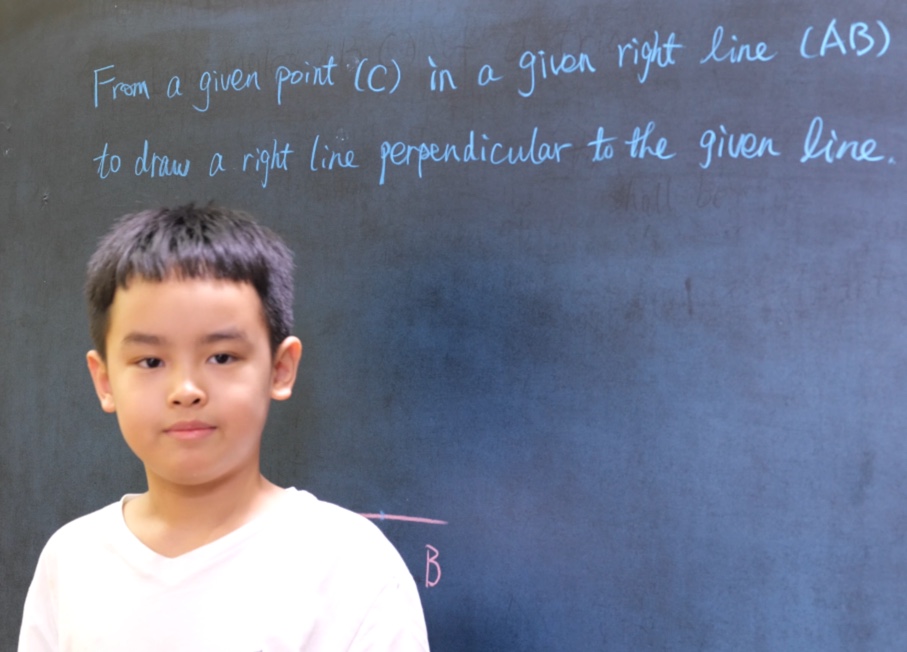 From a given point (C) in a given right line (AB)
to draw a right line perpendicular to the given line.
B